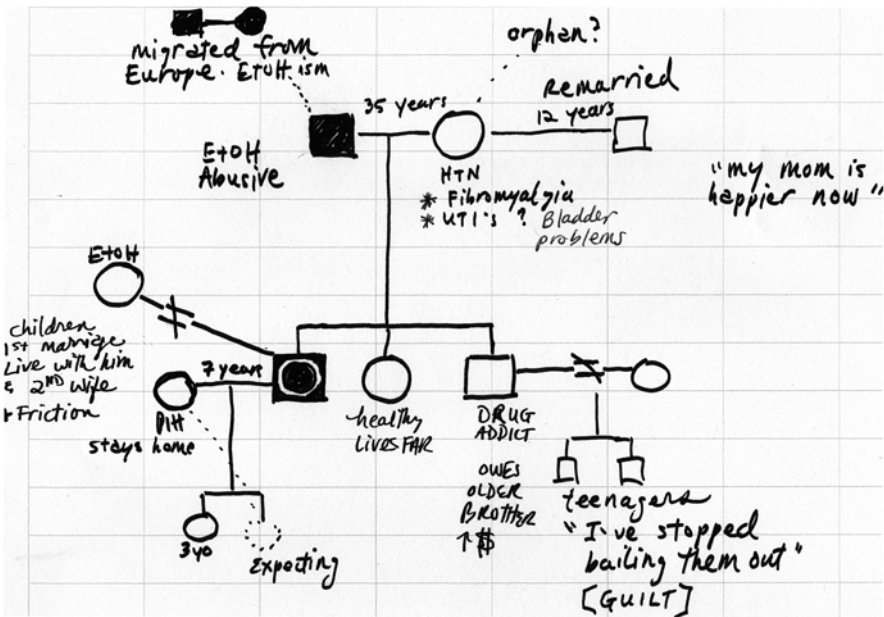 migrated from
Europe. EtOH.ism
orphan?
35 years
Remarried
12 years
EtOH
Abusive
HTN
* Fibromyalgia
* UTI's ? Bladder
problems
"my mom is
happier now"
EtOH
children
1st marriage
Live with him
2ND wife
+ Friction
7 years
PIH
stays home
healthy
Lives FAR
DRUG
ADDICT
OWES
OLDER
BROTHER
↑ $
3yo
Expecting
teenagers
"I've stopped
bailing them out"
[GUILT]